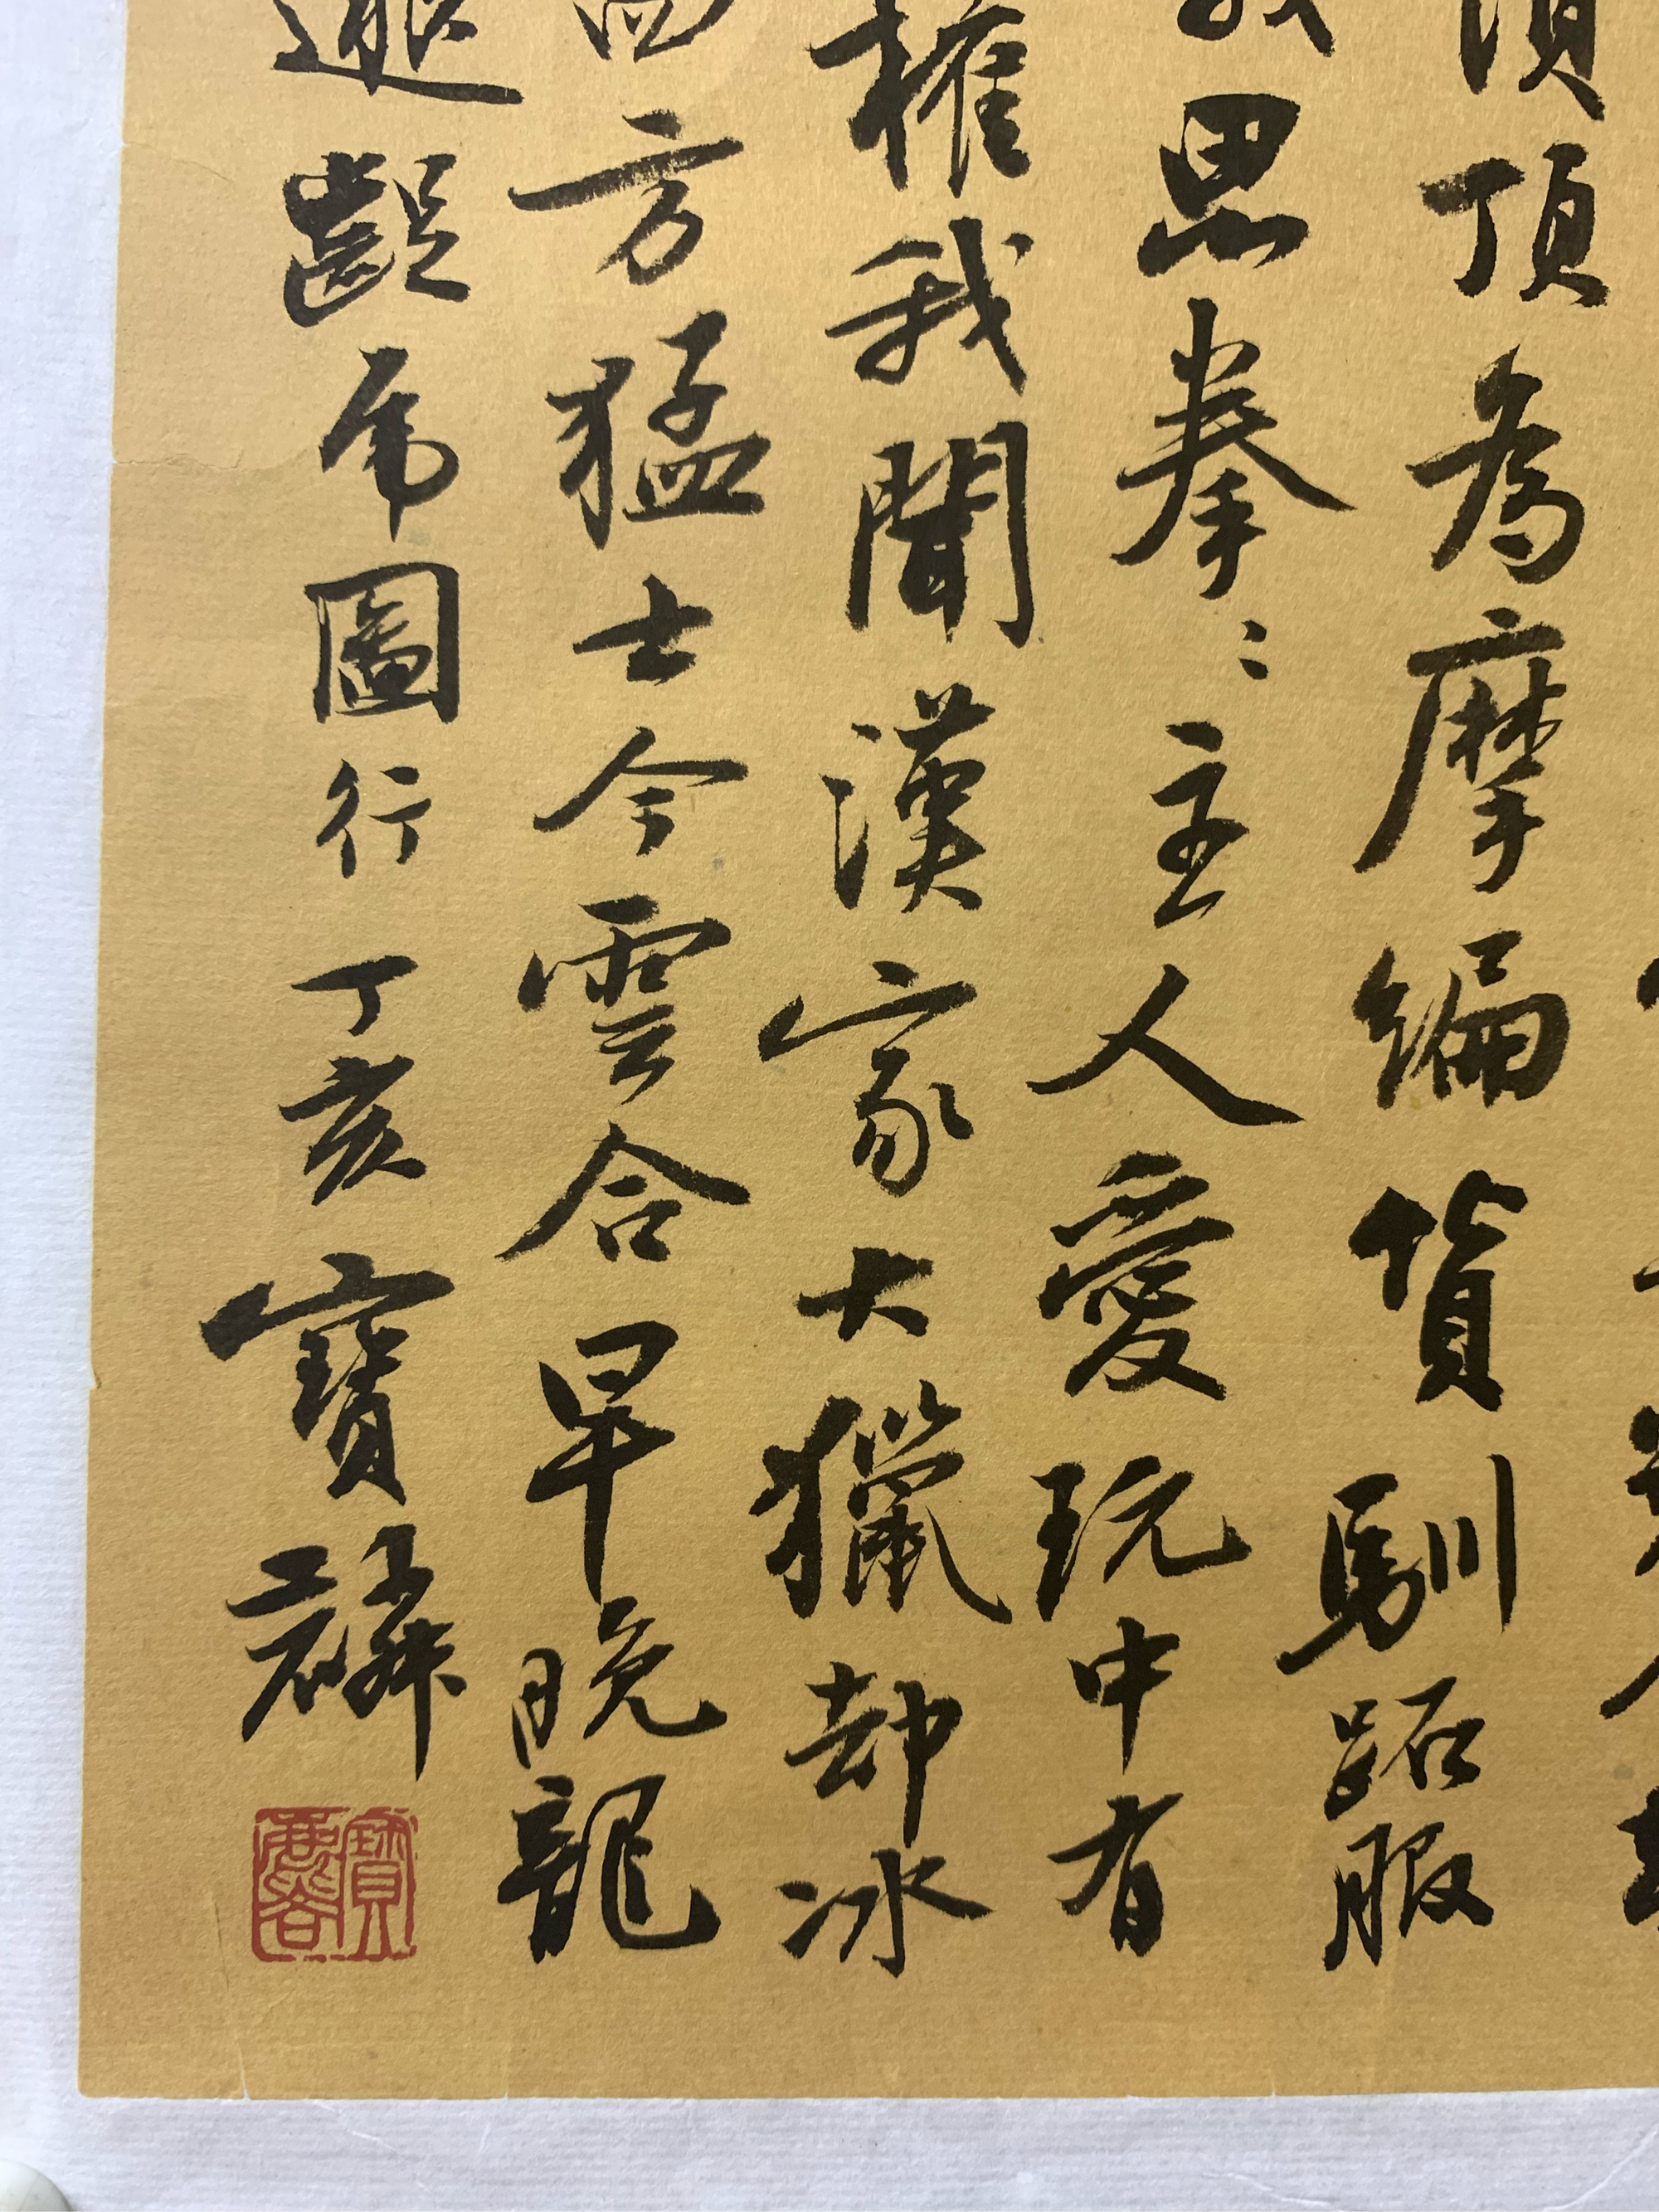 頂為摩編貨馴跖服
思拳〻主人愛玩中有
權我聞漢家大獵却冰
方猛士今雲合早晚龍
齪虎圖行丁亥寶麟
寶